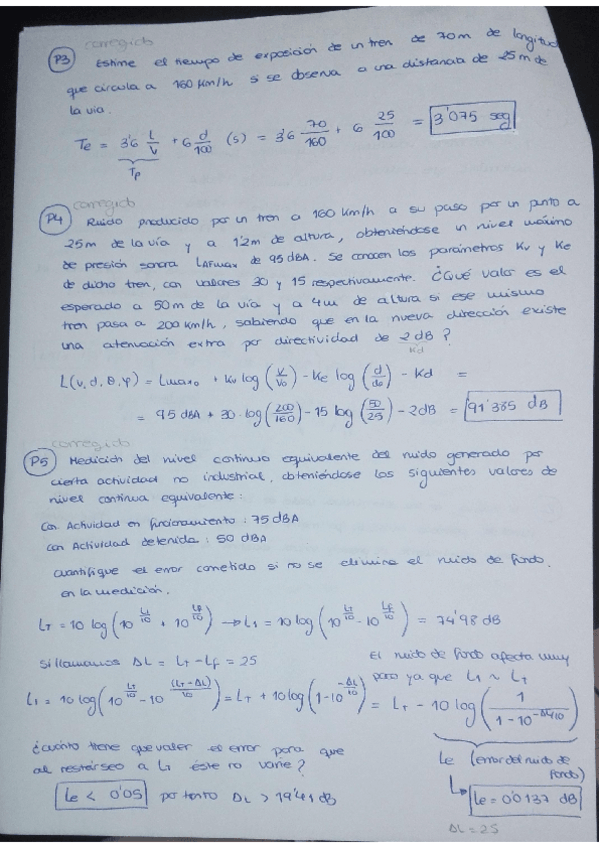 corregido
P3 Estime el tiempo de exposición de un tren de 70m de longitud
que circula a 160 Km/h si se observa a una distancia de 25m de
la vía.
Te = 3'6 L/V + 6 d/100 (s) = 3'6 70/160 + 6 25/100 = 3'075 seg
Tp
corregido
P4 Ruido producido por un tren a 160 Km/h a su paso por un punto a
25m de la vía y a 1'2m de altura, obteniéndose un nivel máximo
de presión sonora LAFmax de 95 dBA. Se conocen los parámetros Kv y Ke
de dicho tren, con valores 30 y 15 respectivamente. ¿Qué valor es el
esperado a 50m de la vía y a 4m de altura si ese mismo
tren pasa a 200 Km/h, sabiendo que en la nueva dirección existe
una atenuación extra por directividad de 2 dB ?
Kd
L(v, d, θ, φ) = Lmax0 + Kv log (V/V0) - Ke log (d/d0) - Kd =
= 95 dBA + 30 · log (200/160) - 15 log (50/25) - 2dB = 91'385 dB
corregido
P5 Medición del nivel continuo equivalente del ruido generado por
cierta actividad no industrial, obteniéndose los siguientes valores de
nivel continuo equivalente:
Con Actividad en funcionamiento : 75 dBA
Con Actividad detenida : 50 dBA
Cuantifique el error cometido si no se elimina el ruido de fondo
en la medición.
LT = 10 log (10^(L1/10) + 10^(Lf/10)) → L1 = 10 log (10^(LT/10) - 10^(Lf/10)) = 74'98 dB
Si llamamos ΔL = LT - Lf = 25
El ruido de fondo afecta muy
poco ya que L1 ~ LT
L1 = 10 log (10^(LT/10) - 10^((LT-ΔL)/10)) = LT + 10 log (1-10^(-ΔL/10)) = LT - 10 log (1/(1-10^(-ΔL/10)))
¿Cuánto tiene que valer el error para que
al restárselo a LT éste no varíe?
Le < 0'05 por tanto ΔL > 19'41 dB
Le (error del ruido de
fondo)
Le = 0'0137 dB
ΔL = 25